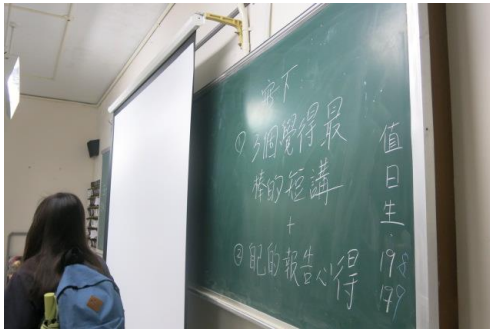 寫下
① 3個覺得最
棒的短講
+
② 自己的報告心得
值日生: 198
199